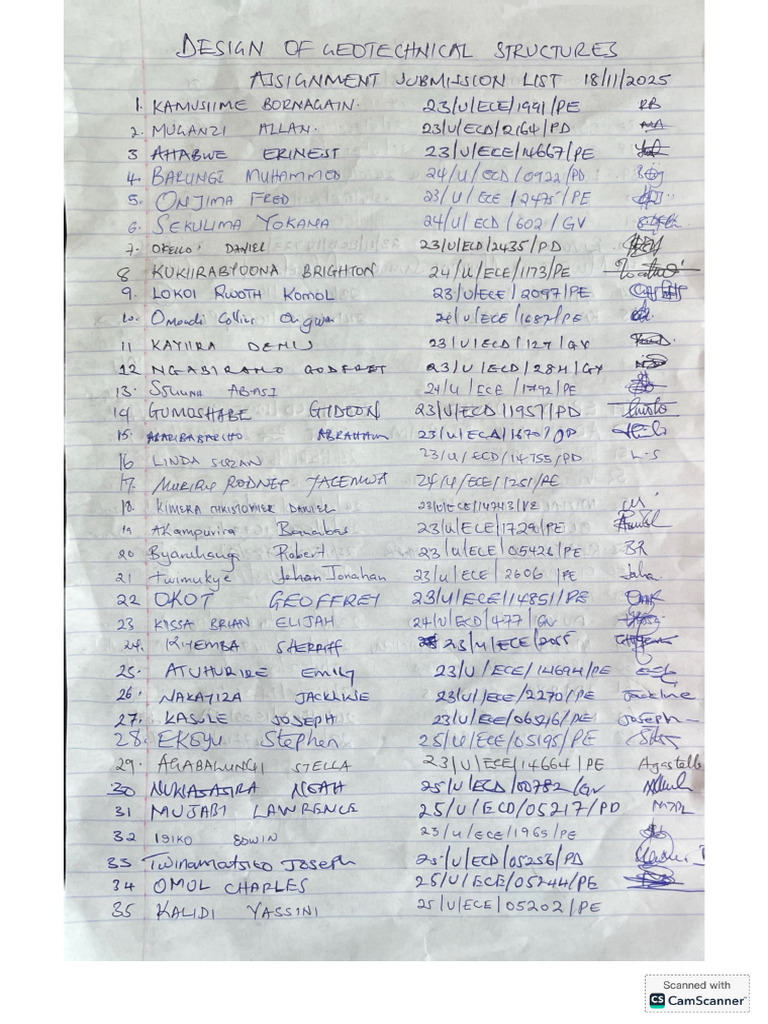 DESIGN OF GEOTECHNICAL STRUCTURES
ASSIGNMENT SUBMISSION LIST 18/11/2025
1. KAMUSIIME BORNAGAIN. 23/U/ECE/1991/PE RB
2. MUGANZI ALLAN. 23/U/ECD/2164/PD MA
3 AHABWE ERINEST 23/U/ECE/14667/PE
4. BARUNGI MUHAMMED 24/U/ECD/0922/PD
5. ONJIMA FRED 23/U/ECE/2475/PE
6. SEKULIMA YOKANA 24/U/ECD/602/GV
7. OKELLO DANIEL 23/U/ECD/2435/PD
8 KUKIIRABYOONA BRIGHTON 24/U/ECE/1173/PE
9. LOKOI RWOTH KOMOL 23/U/ECE/2097/PE
10. Omondi Collins 24/U/ECE/1687/PE
11 KAYIIRA DENIS 23/U/ECD/127/GV
12 NGABIRANO GODFREY 23/U/ECD/284/GV
13. SSUUNA ABASI 24/U/ECE/1792/PE
14 GUMOSHABE GIDEON 23/U/ECD/1957/PD
15. ABRAHAM 23/U/ECD/1670/PD
16 LINDA SUZAN 23/U/ECD/14755/PD L-S
17. RODNEY 24/U/ECE/1251/PE
18. KIMERA CHRISTOPHER DANIEL 23/U/ECE/14743/PE
19 Akampurira Banabas 23/U/ECE/1729/PE
20 Robert 23/U/ECE/05426/PE BR
21 Twimukye Jehan Jonahan 23/U/ECE/2606/PE
22 OKOT GEOFFREY 23/U/ECE/14851/PE
23 KISSA BRIAN ELIJAH 24/U/ECD/477/GV
24. KIYEMBA SHERIFF 23/U/ECE/2055
25. ATUHURIRE EMILY 23/U/ECE/14694/PE
26. NAKAYIZA JACKLINE 23/U/ECE/2270/PE Jackline
27. KASULE JOSEPH 23/U/ECE/06216/PE Joseph
28. EKSYU Stephen 25/U/ECE/05195/PE
29. AGABALUNGI STELLA 23/U/ECE/14664/PE Agastella
30 NUWASASIRA NOAH 25/U/ECD/00782/GV
31 MUJABI LAWRENCE 25/U/ECD/05217/PD
32 ISIKO EDWIN 23/U/ECE/1965/PE
33 Twinamatsiko Joseph 25/U/ECD/05256/PD
34 OMOL CHARLES 25/U/ECE/05244/PE
35 KALIDI YASSINI 25/U/ECE/05202/PE
Scanned with
CS CamScanner